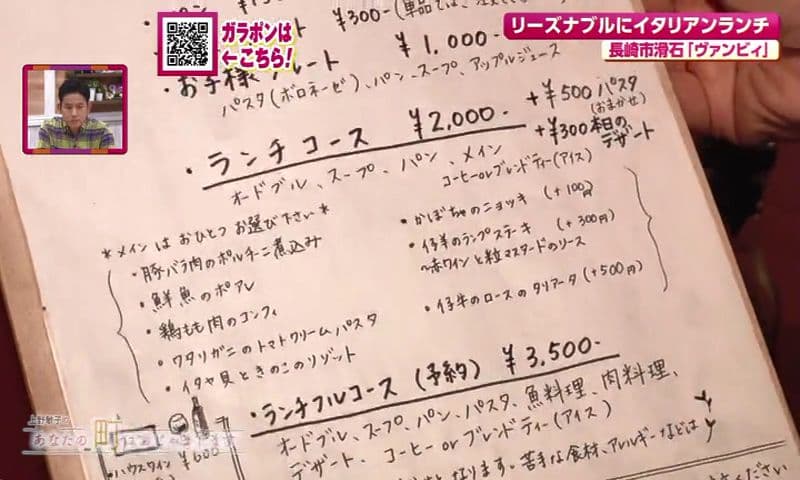 ガラポンは
←こちら!
リーズナブルにイタリアンランチ
長崎市滑石「ヴァンビィ」
¥300-
お子様プレート ¥1,000-
パスタ(ボロネーゼ)、パン、スープ、アップルジュース
・ランチコース ¥2,000-
+¥500 パスタ
(おまかせ)
+¥300 本日の
デザート
オードブル、スープ、パン、メイン
コーヒーorブレンドティー(アイス)
*メインはおひとつお選び下さい*
・豚バラ肉のポルチーニ煮込み
・鮮魚のポアレ
・鶏もも肉のコンフィ
・ワタリガニのトマトクリームパスタ
・イタヤ貝ときのこのリゾット
・かぼちゃのニョッキ (+100円)
・仔羊のランプステーキ (+300円)
~赤ワインと粒マスタードのソース
・仔牛のロースのタリアータ (+500円)
・ランチフルコース(予約) ¥3,500-
オードブル、スープ、パン、パスタ、魚料理、肉料理、
デザート、コーヒーorブレンドティー(アイス)
となります。苦手な食材、アレルギーなどは
ください
・ハウスワイン
¥600
上野敦子の
あなたの町